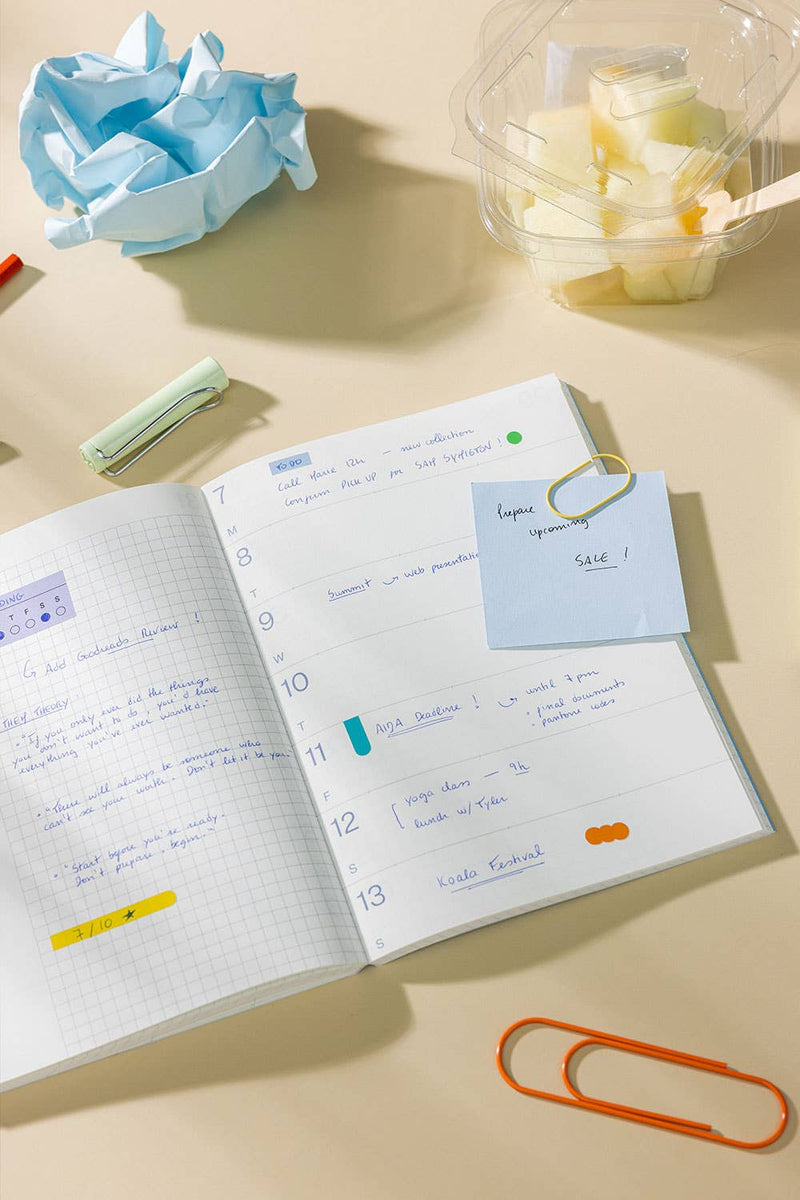 DING
T F S S
Add Goodreads Review !
THEM THEORY:
• "If you only ever did the things
you don't want to do, you'd have
everything you've ever wanted."
• "There will always be someone who
can't see your worth. Don't let it be you."
• "Start before you're ready.
Don't prepare, begin."
7/10 ★
7
M
TO DO
Call Marie 12h – new collection
Confirm PICK UP for !
8
T
9
W
Summit → web presentatio
10
T
11
F
AIDA Deadline ! → until 7 pm
• final documents
• pantone codes
12
S
yoga class – 9h
lunch w/ Tyler
13
S
Koala Festival
Prepare
upcoming
SALE !